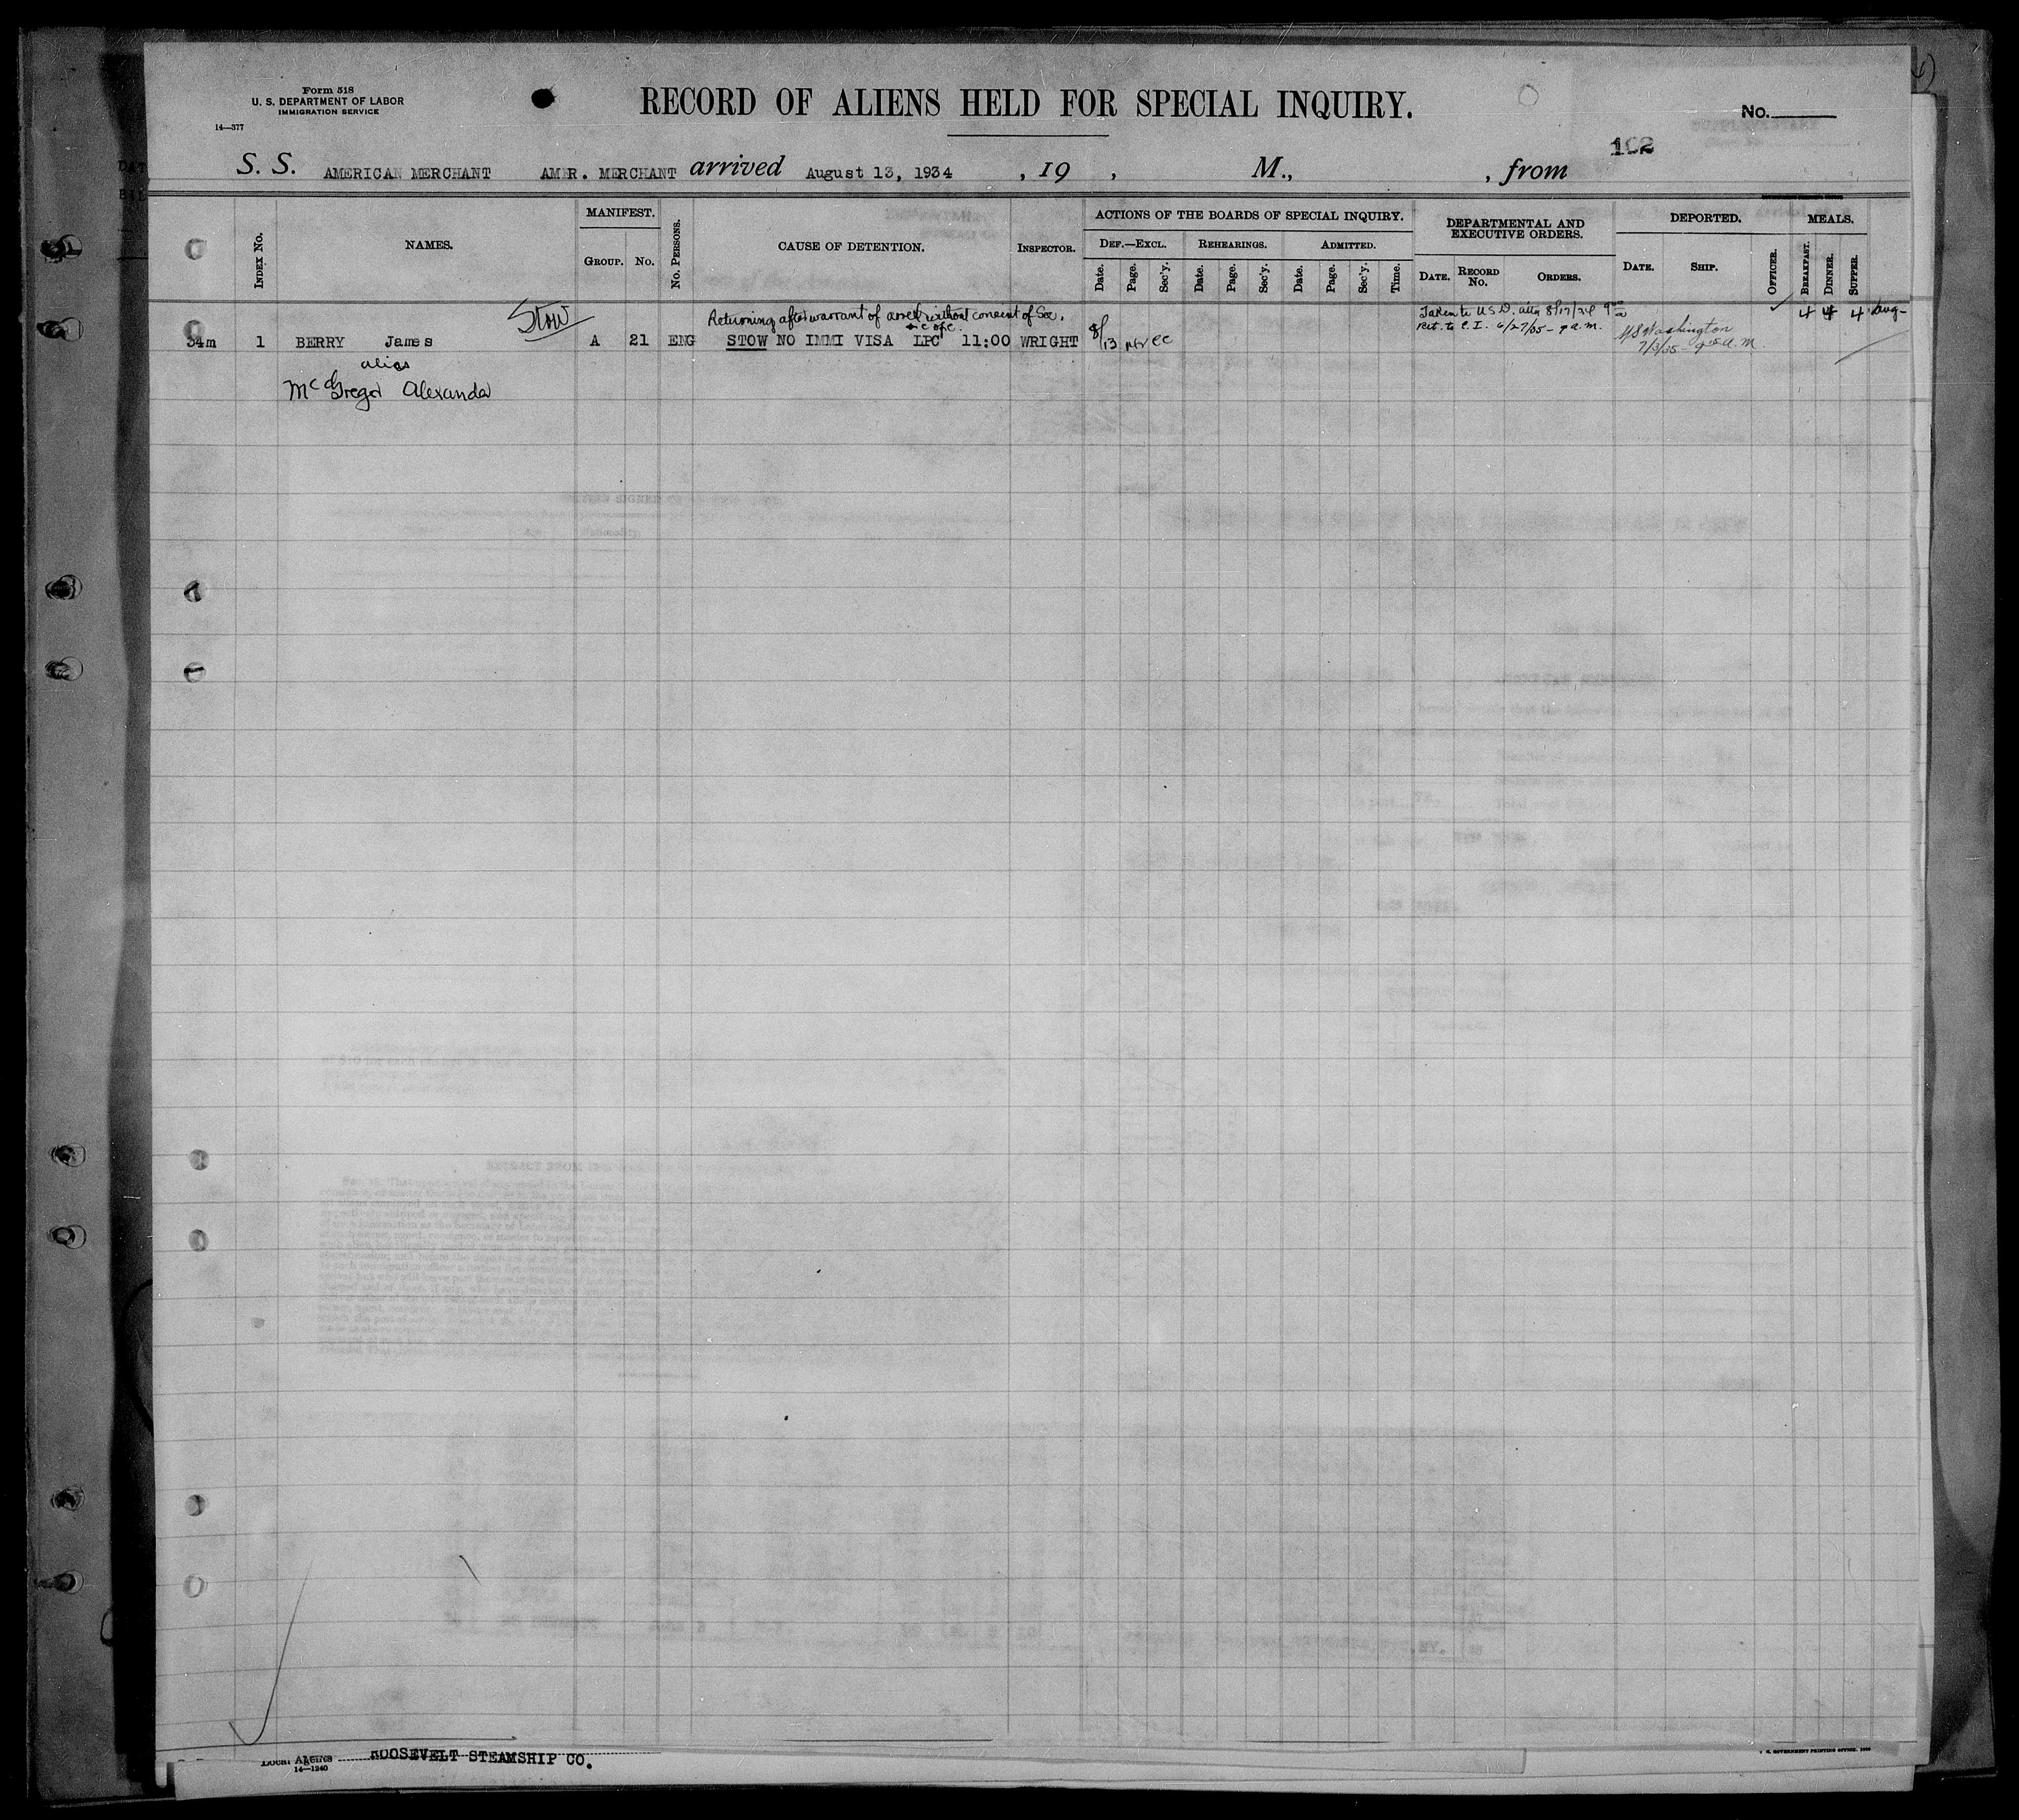 Form 518
U. S. DEPARTMENT OF LABOR
IMMIGRATION SERVICE
14—377
RECORD OF ALIENS HELD FOR SPECIAL INQUIRY.
No.
102
S. S. AMERICAN MERCHANT AMER. MERCHANT arrived August 13, 1934 , 19 , M., , from
INDEX No.
NAMES.
MANIFEST.
GROUP. No.
No. PERSONS.
CAUSE OF DETENTION.
INSPECTOR.
ACTIONS OF THE BOARDS OF SPECIAL INQUIRY.
DEF.—EXCL. REHEARINGS. ADMITTED.
Date. Page. Sec'y. Date. Page. Sec'y. Date. Page. Sec'y. Time.
DEPARTMENTAL AND
EXECUTIVE ORDERS.
DATE. RECORD No. ORDERS.
DEPORTED.
DATE. SHIP. OFFICER.
MEALS.
BREAKFAST. DINNER. SUPPER.
Stow
Returning after warrant of arrest without consent of Sec.
34m 1 BERRY James A 21 ENG STOW NO IMMI VISA LPC 11:00 WRIGHT 8/13
Taken to U S D. 8/17/34 9
Ret. to E. I. 6/27/35 - 9 a.m.
Washington
7/3/35 - a.m
4 4 4 Aug-
alias
McGregor Alexander
Local Agents ROOSEVELT STEAMSHIP CO.
14—1240
U. S. GOVERNMENT PRINTING OFFICE.